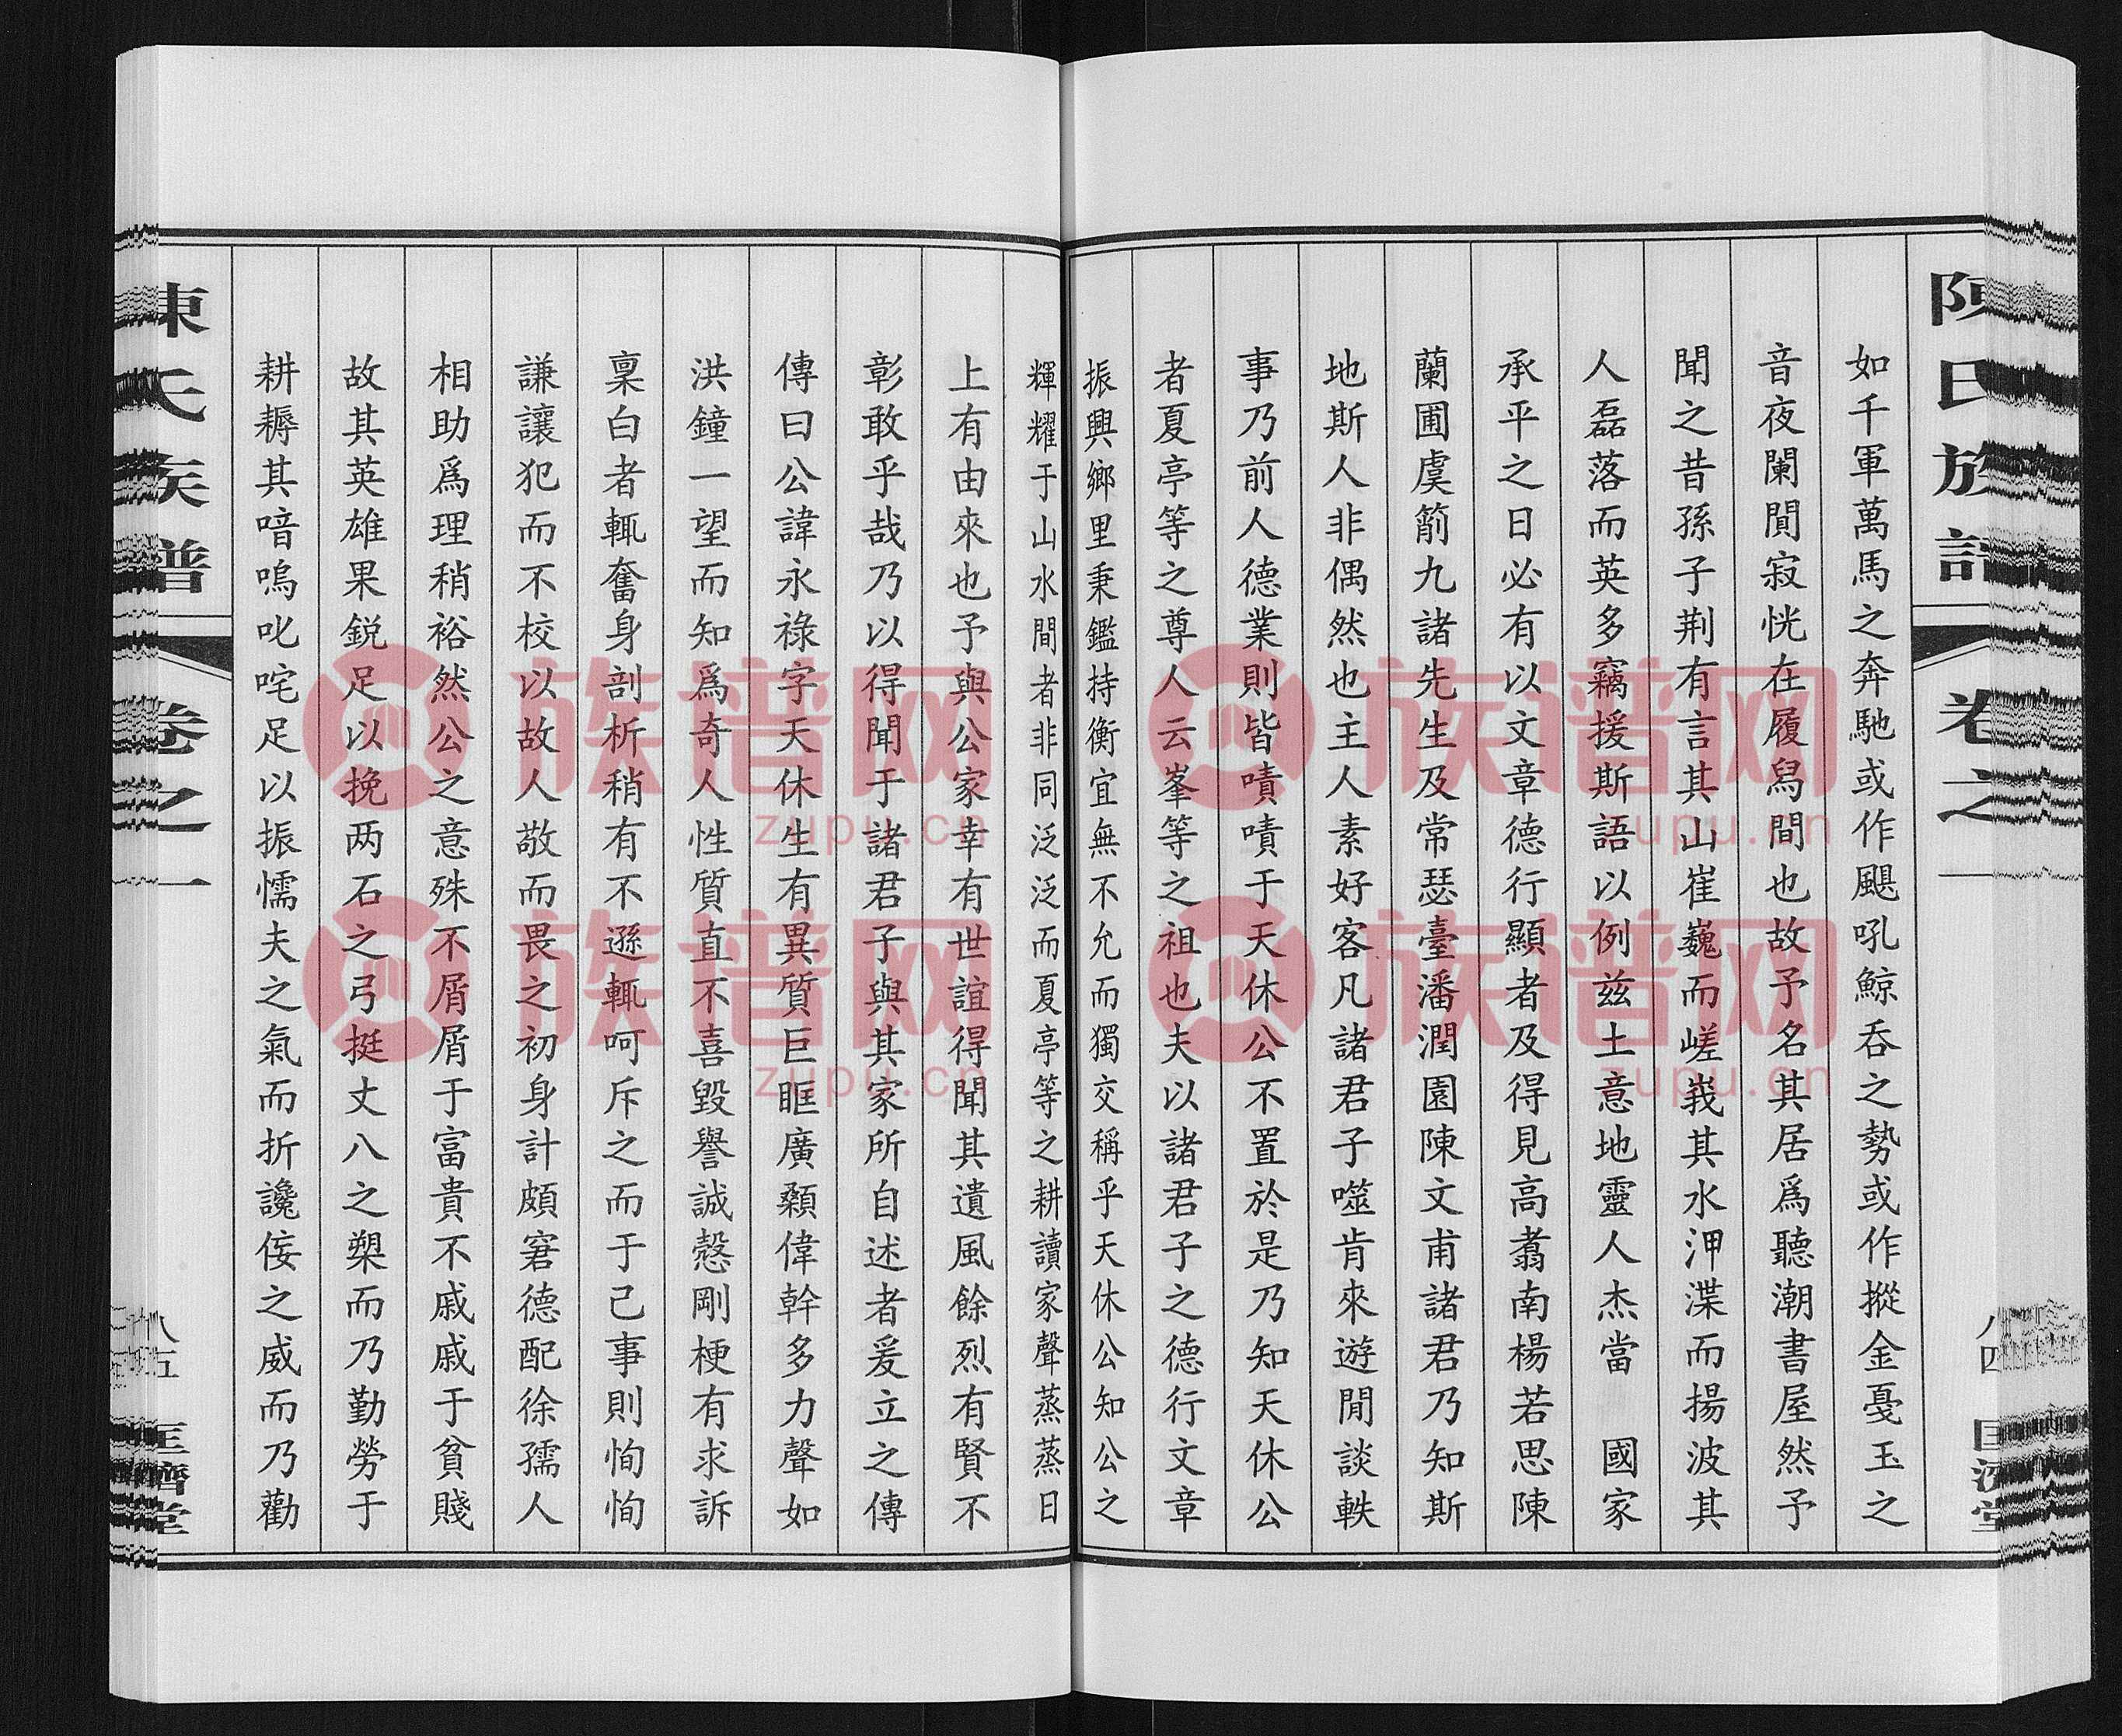 陳氏族譜 卷之一 八四 匡濟堂
如千軍萬馬之奔馳或作颶吼鯨吞之勢或作摐金戛玉之
音夜闌閴寂恍在履舄間也故予名其居爲聽潮書屋然予
聞之昔孫子荆有言其山崔巍而嵯峩其水浬渫而揚波其
人磊落而英多竊援斯語以例兹土意地靈人杰當　國家
承平之日必有以文章德行顯者及得見高翥南楊若思陳
蘭圃虞箾九諸先生及常瑟臺潘潤園陳文甫諸君乃知斯
地斯人非偶然也主人素好客凡諸君子噬肯來遊閒談軼
事乃前人德業則皆嘖嘖于天休公不置於是乃知天休公
者夏亭等之尊人云峯等之祖也夫以諸君子之德行文章
振興鄉里秉鑑持衡宜無不允而獨交稱乎天休公知公之
輝耀于山水間者非同泛泛而夏亭等之耕讀家聲蒸蒸日
上有由來也予與公家幸有世誼得聞其遺風餘烈有賢不
彰敢乎哉乃以得聞于諸君子與其家所自述者爰立之傳
傳曰公諱永祿字天休生有異質巨眶廣顙偉幹多力聲如
洪鐘一望而知爲奇人性質直不喜毀譽誠慤剛梗有求訴
稟白者輒奮身剖析稍有不遜輒呵斥之而于己事則恂恂
謙讓犯而不校以故人敬而畏之初身計頗窘德配徐孺人
相助爲理稍裕然公之意殊不屑屑于富貴不戚戚于貧賤
故其英雄果銳足以挽两石之弓挺丈八之槊而乃勤勞于
耕耨其喑嗚叱咤足以振懦夫之氣而折讒侫之威而乃勸
陳氏族譜 卷之一 八五 匡濟堂
族谱网
zupu.cn
族谱网
zupu.cn
族谱网
zupu.cn
族谱网
zupu.cn